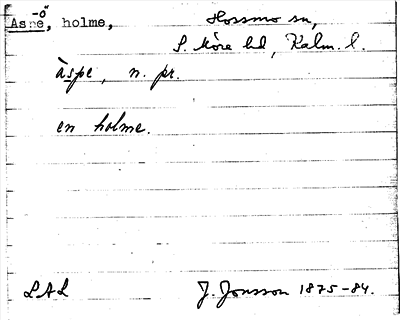 Aspe, -ö holme, Hossmo sn,
S. Möre hd, Kalm. l.
àspe, n. pr.
en holme.
LAL J. Jonsson 1875-84.